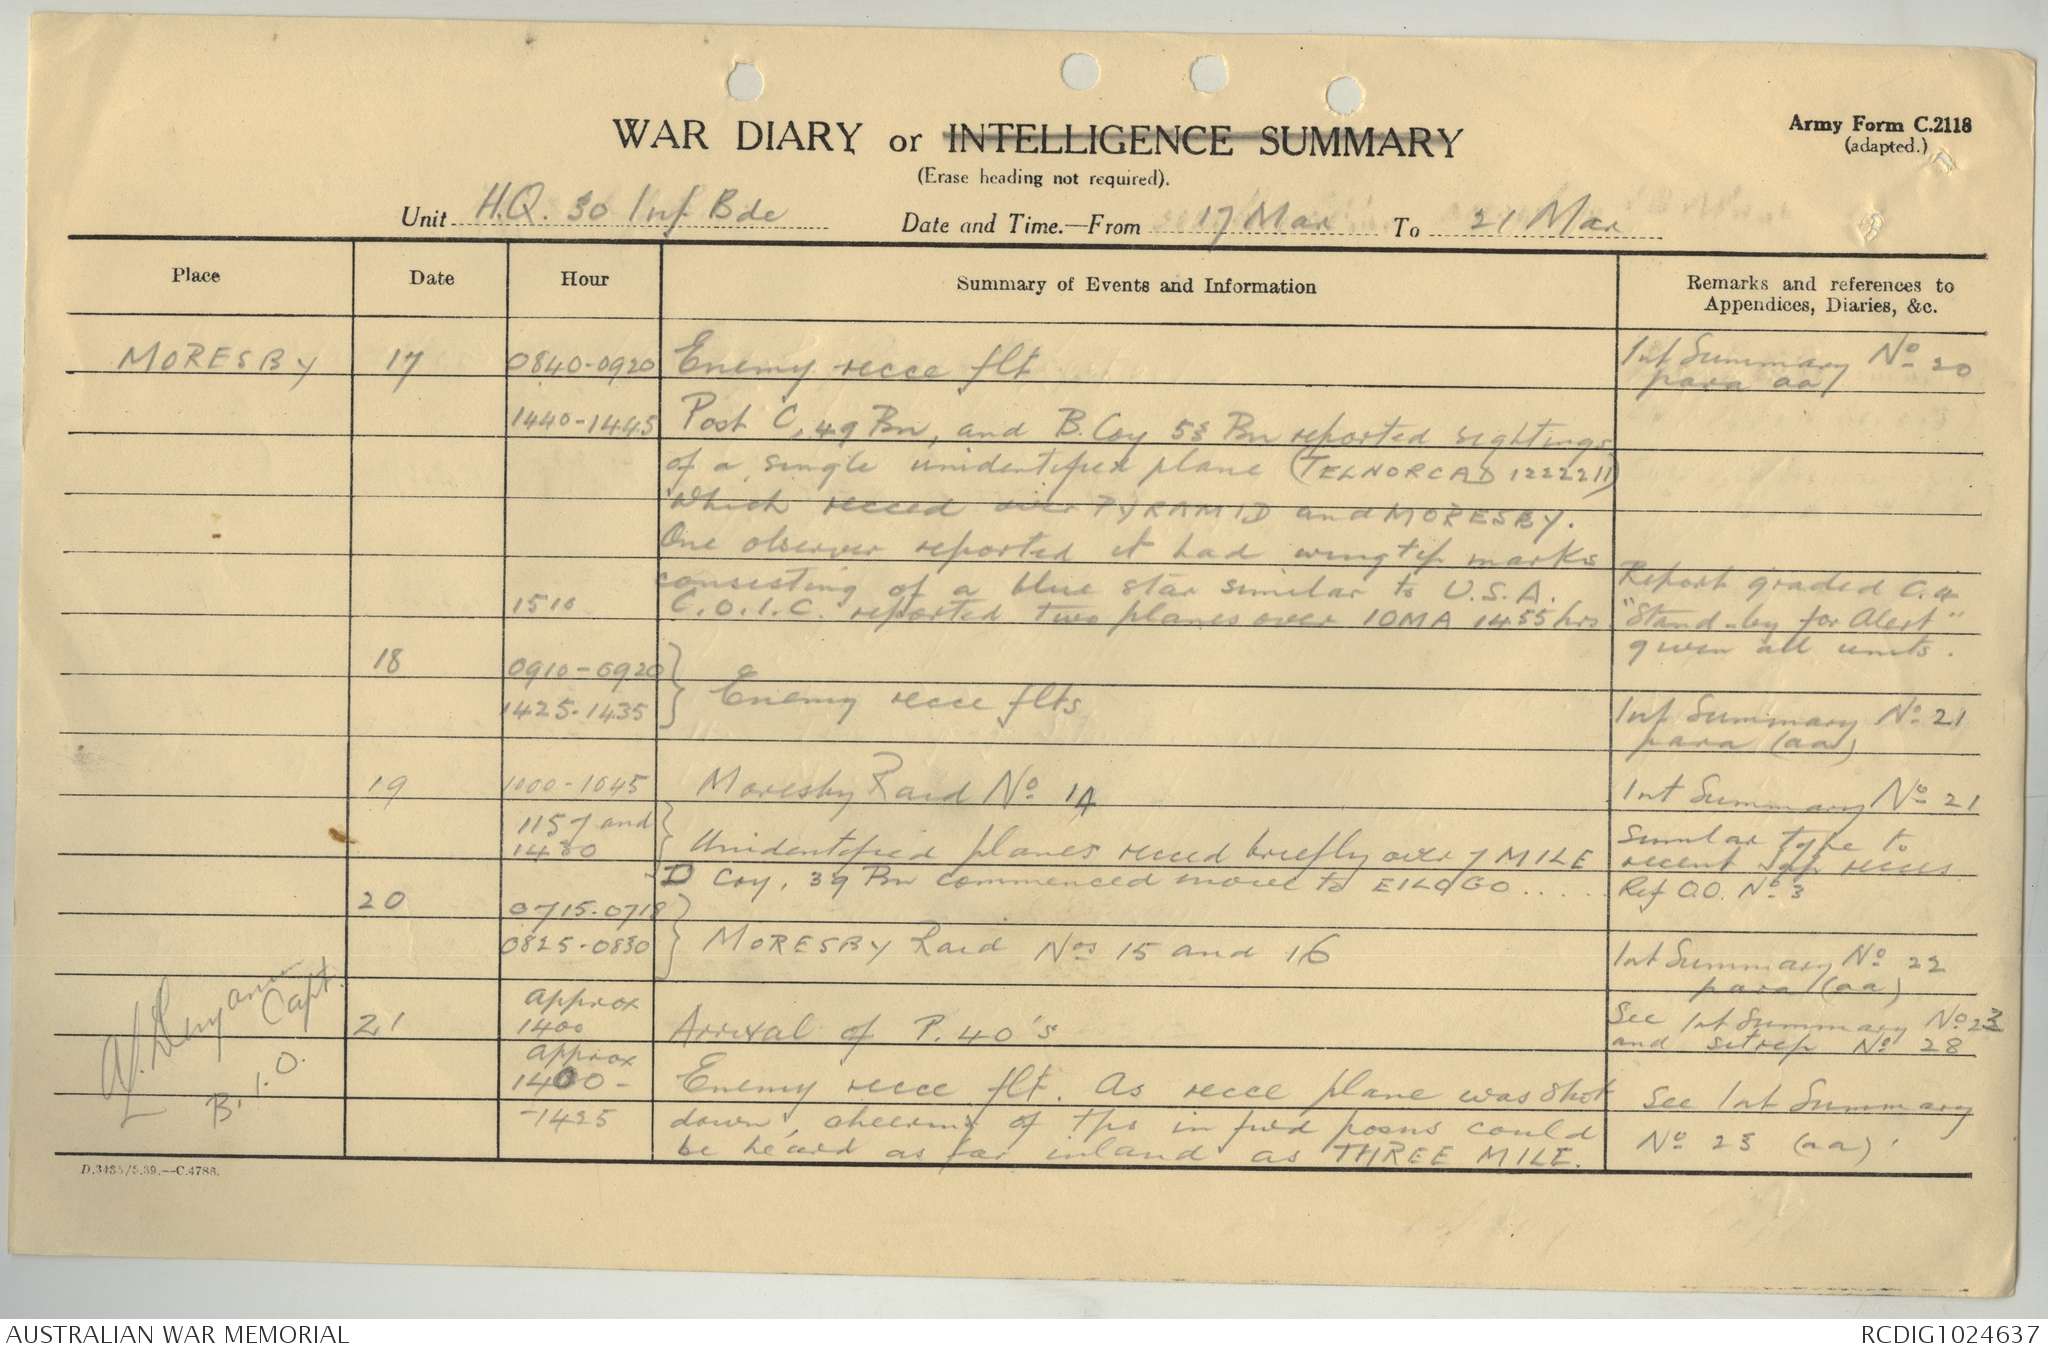 WAR DIARY or INTELLIGENCE SUMMARY
(Erase heading not required).
Army Form C.2118
(adapted.)
Unit H.Q. 30 Inf Bde
Date and Time.—From 17 Mar To 21 Mar
Place Date Hour Summary of Events and Information Remarks and references to
Appendices, Diaries, &c.
MORESBY 17 0840-0920 Enemy recce flt Int Summary No 20
para aa)
1440-1445 Post C, 49 Bn, and B. Coy 53 Bn reported sightings
of a single unidentified plane (TELNORCAD 122221)
which recced over PYRAMID and MORESBY.
One observer reported it had wingtip marks
consisting of a blue star similar to U.S.A. Report graded C.4
1510 C.O.I.C. reported two planes over IOMA 1455 hrs "Stand-by for Alert"
given all units.
18 0910-0920 Enemy recce flts
1425-1435 Int Summary No 21
para (aa)
19 1000-1045 Moresby Raid No 14 Int Summary No 21
1157 and
1430 Unidentified planes recced briefly over 7 MILE Similar type to
recent Jap recces
D Coy, 39 Bn commenced move to EILOGO..... Ref O.O. No 3
20 0715-0718
0825-0830 MORESBY Raid Nos 15 and 16 Int Summary No 22
para (aa)
21 approx
1400 Arrival of P.40's See Int Summary No 23
and sitrep No 28
approx
1400- Enemy recce flt. As recce plane was shot See Int Summary
-1425 down, cheering of tps in fwd posns could No 23 (aa)
be heard as far inland as THREE MILE.
Capt.
B.I.O.
D.3435/5.39.—C.4786.
AUSTRALIAN WAR MEMORIAL
RCDIG1024637